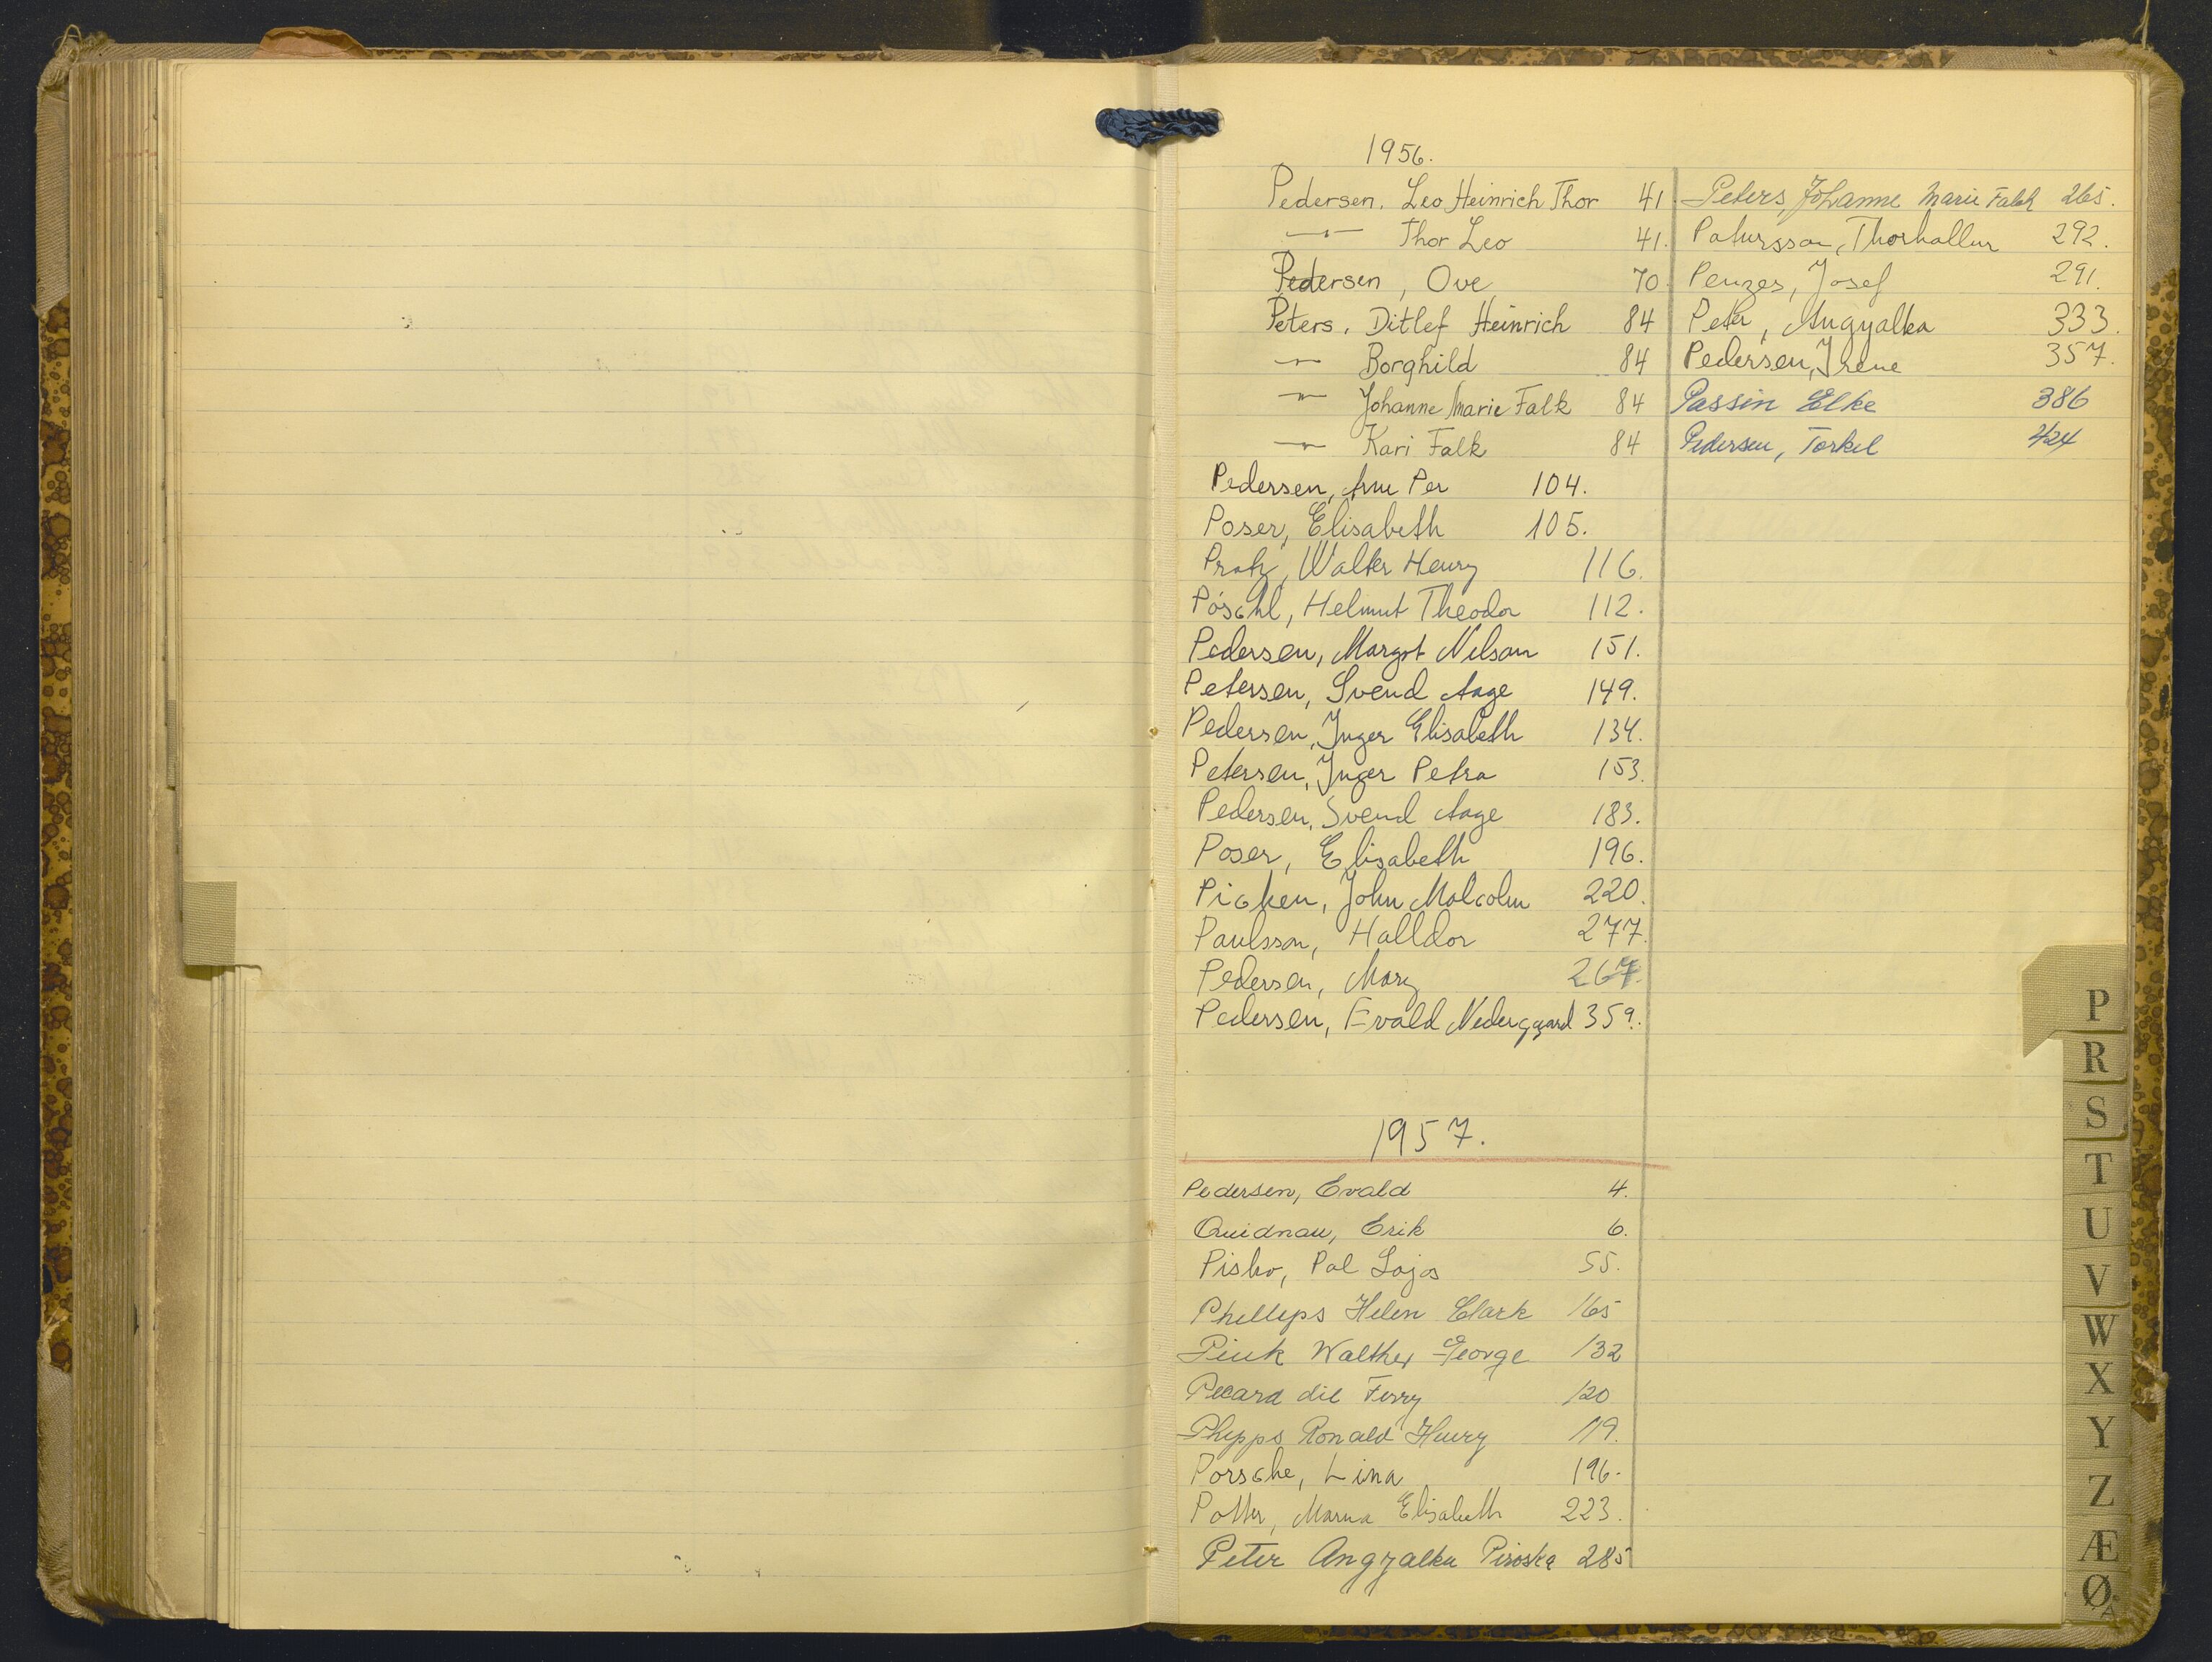 1956.
Pedersen, Leo Heinrich Thor 41
-"- Thor Leo 41.
Pedersen, Ove 70
Peters, Ditlef Heinrich 84
-"- Borghild 84
-"- Johanne Marie Falk 84
-"- Kari Falk 84
Pedersen, Arne Per 104.
Poser, Elisabeth 105.
Walter Henry 116.
Pöschl, Helmut Theodor 112.
Pedersen, Margot Nilsen 151.
Petersen, Svend Aage 149.
Pedersen, Inger Elisabeth 134.
Petersen, Inger Petra 153.
Pedersen, Svend Aage 183.
Poser, Elisabeth 196.
Picken, John Malcolm 220.
Paulsson, Halldor 277.
Pedersen, Mary 267.
Pedersen, Evald Nedergaard 359.
Peters, Johanne Marie Falk 265.
Patursson, Thorhallur 292.
Penzes, Josef 291.
Peter, Angyalka 333.
Pedersen, Irene 357.
Passin Elke 386
Pedersen, Torkel 424
1957.
Pedersen, Evald 4.
Quidnau, Erik 6.
Pisko, Pal Lajos 55.
Phillips Helen Clark 165
Pink Walther George 132
Ferry 120
Phipps Ronald Henry 119.
Porsche, Lina 196.
Potter, Marna Elisabeth 223.
Peter Angyalka Piroska 285
P
R
S
T
U
V
W
X
Y
Z
Æ
Ø
Å